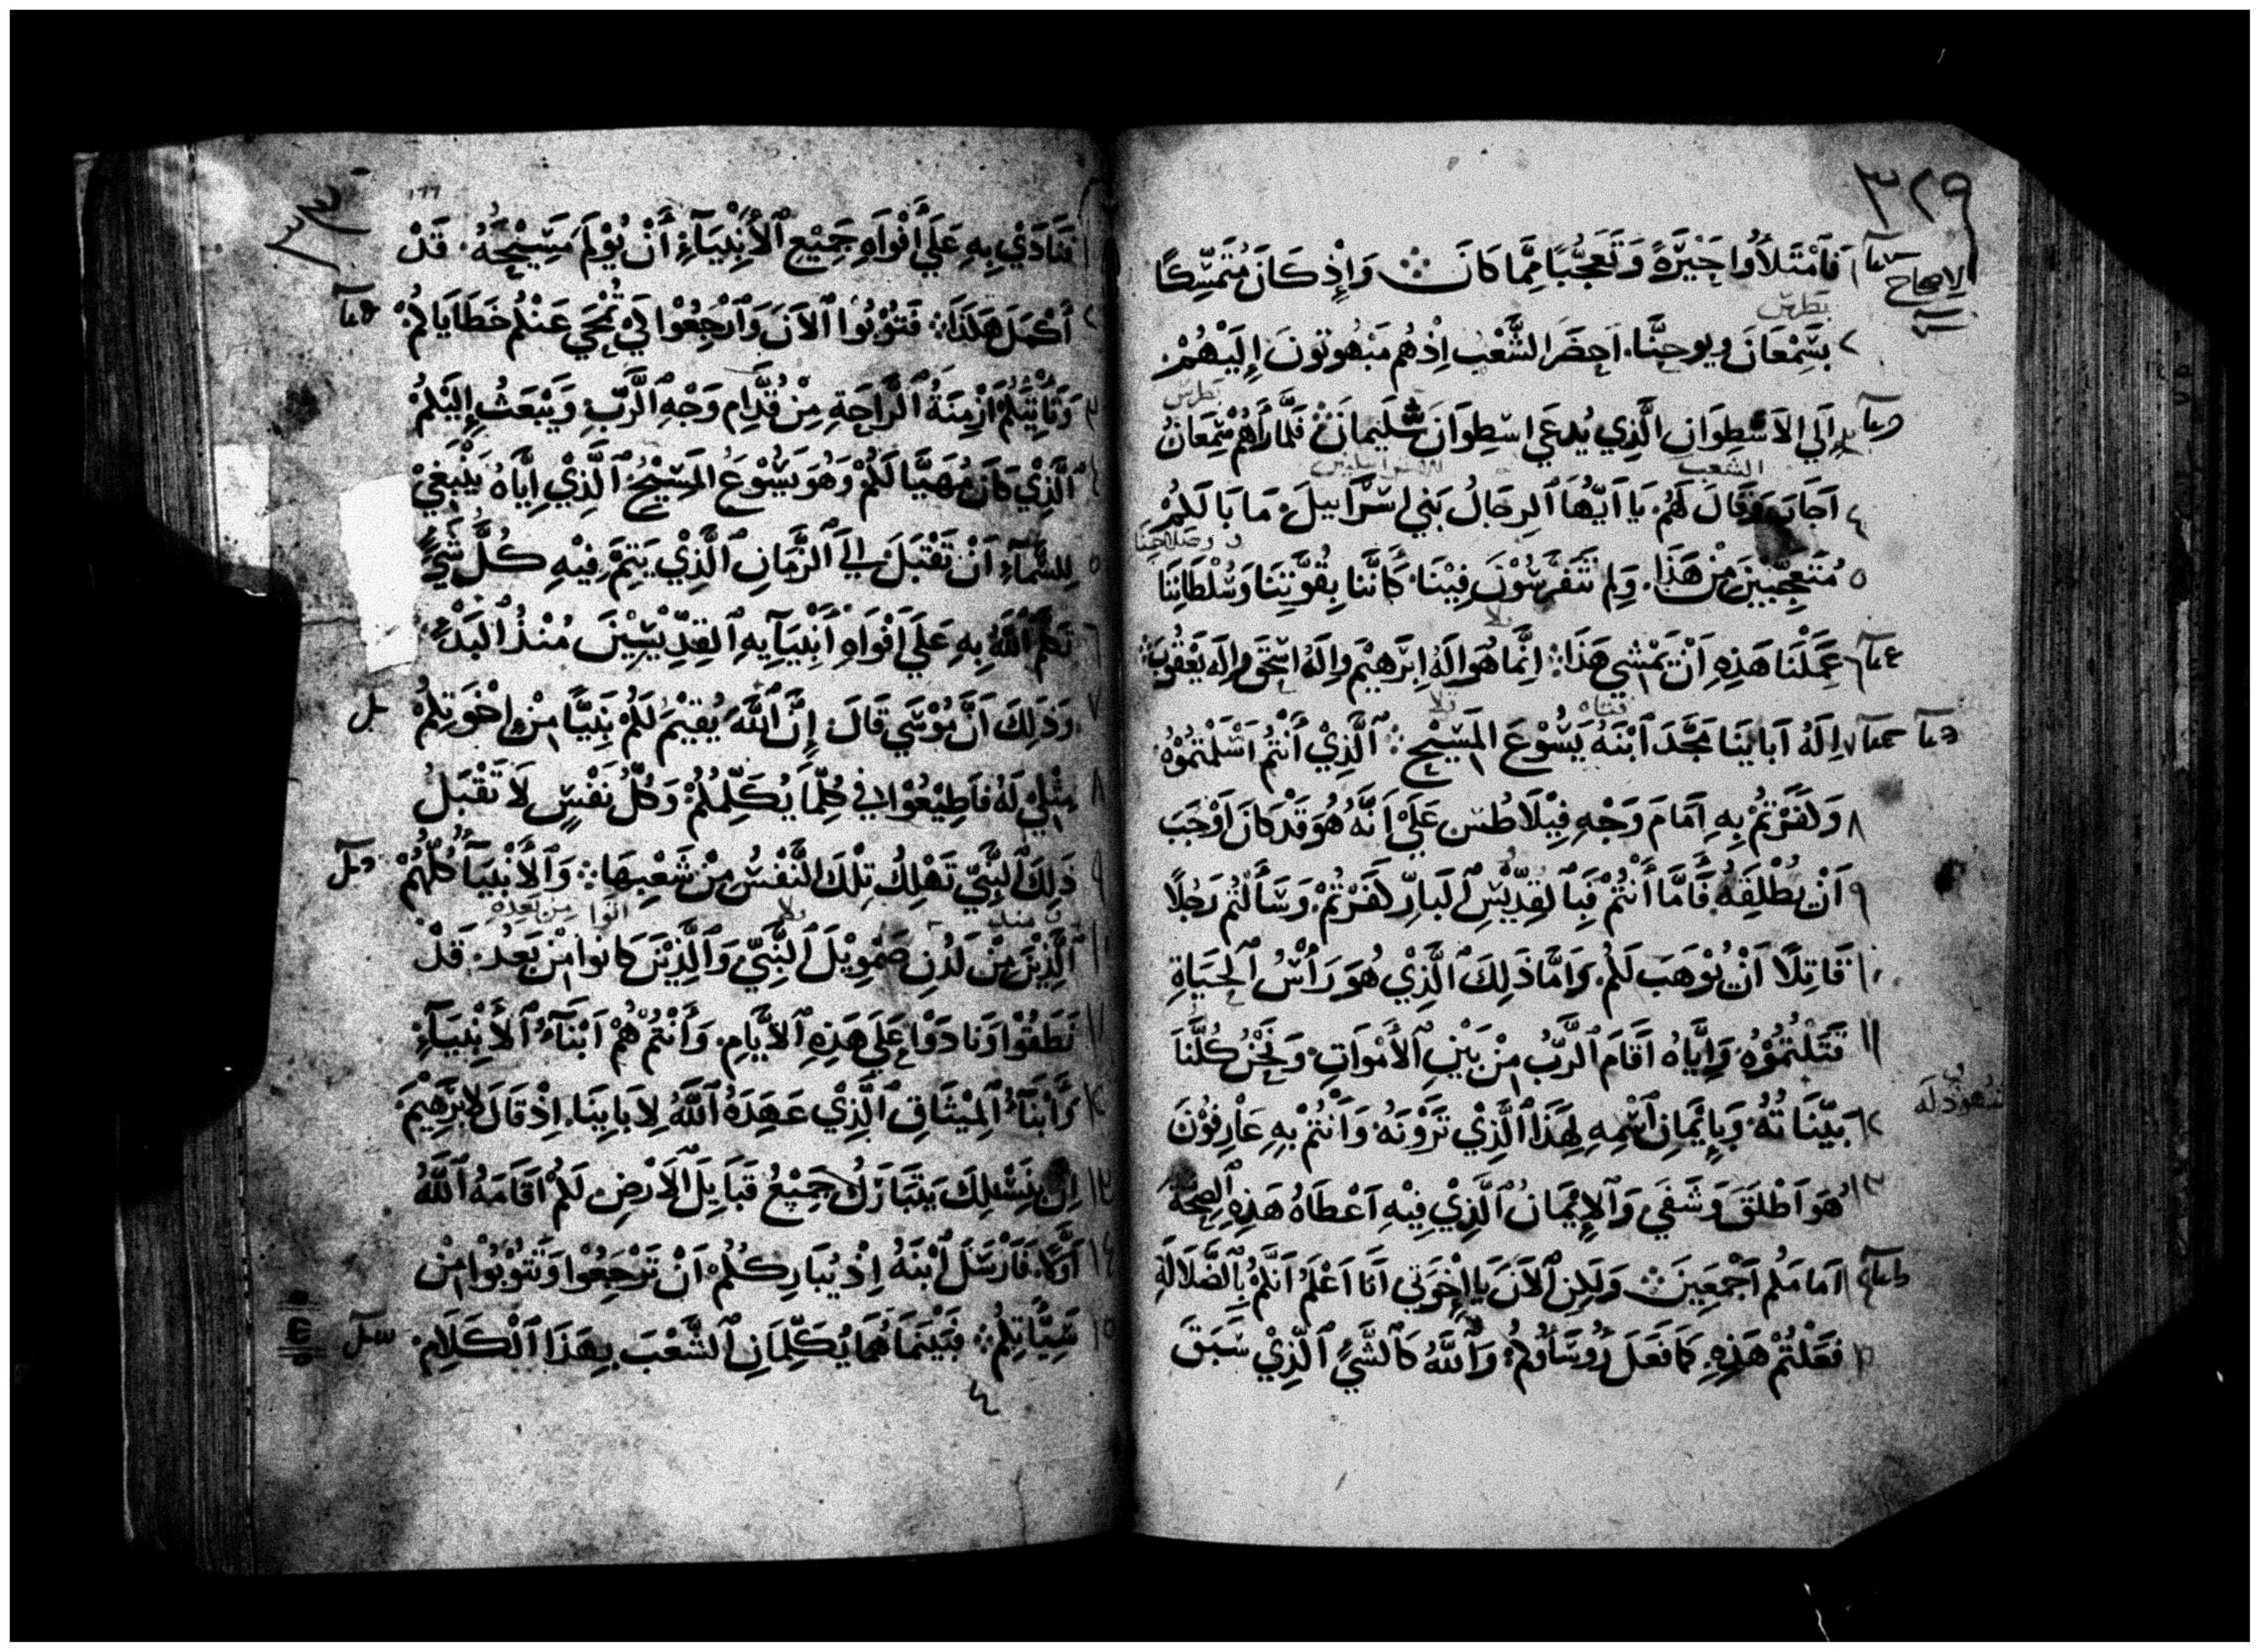 ٣٢٩
الاصحاح
١ فَٱمْتَلَأُوا حَيْرَةً وَتَعَجُّبًا مِمَّا كَانَ ۞ وَإِذْ كَانَ مُتَمَسِّكًا
بطرس
٢ بِسَمْعَانَ ويوحنَّا. احضَرَ الشَّعْبُ اِذْ هُم مَبْهُوتونَ إِلَيْهُمْ
بطرس
٣ اِلَى الاَسْطِوَانِ الَّذِي يُدعَى اسْطِوَانَ سُلَيمانَ فَلَمَّا رَاَهُم سَمْعَانُ
الشعب
٤ اَجَابَ وَقَالَ لَهُم. يَا اَيُّهَا ٱلرِجَالُ بَنِي اسْرَاييلَ. مَا بَالَكُمْ
٥ مُتَعَجِّبِينَ مِنْ هَذَا. وَلِمَ تَتَفَرَّسُوْنَ فِيْنَا. كَأَنَّنا بِقُوَّتِنَا وَسُلْطَانِنَا
٦ عَمَلْنَا هَذِهِ اَنْ يَمْشِي هَذَا: اِنَّما هُوَ اِلَهُ اِبْرَهيْمَ وَاِلَهُ اسْحَقَ وَاِلَه يَعْقُوبَ
فتاه
٧ اِلَهُ اَبَايِنَا مَجَّدَ ٱبْنَهُ يَسُوْعَ المَسِيْحَ: ٱلَّذِيْ أَنْتُمْ اَسْلَمْتُمُوْهُ
٨ وَكَفَرْتمُ بِهِ اَمَامَ وَجْهِ فِيْلَاطُسَ عَلَيْ اَنَّهُ هُوَ قَدْ كَانَ اَوْجَبَ
٩ اَنْ يُطْلِقَهُ. فَأَمَّا أَنْتُمْ فَبِٱلقِدِّيْسِ ٱلبَارِّ كَفَرْتُمْ. وَسَأَلْتُم رَجُلًا
١٠ قَاتِلًا اَنْ يُوْهَبَ لَكُم. وَاَمَّا ذَلِكَ ٱلَّذِيْ هُوَ رَأْسُ ٱلحَيَاةِ
١١ قَتَلْتُمُوْهُ. وَاِيَّاهُ اَقَامَ ٱلرَّبُّ مِنْ بَيْنِ ٱلأَمْوَاتِ. وَنَحْنُ كُلُّنَا
شهود له
١٢ بَيِّنَاتُهُ. وَبِاِيْمَانِ ٱسْمِهِ لِهَذَا ٱلَّذِيْ تَرَوْنَهُ وَاَنْتُمْ بِهِ عَارِفُوْنَ
١٣ هُوَ اَطْلَقَ وَشَفَى وَٱلاِيْمَانُ ٱلَّذِيْ فِيْهِ اَعْطَاهُ هَذِهِ ٱلصِحَّةَ
١٤ اَمَامَكُم اَجْمَعِينَ ۞ وَلَكِنِ ٱلاَنَ يَا اِخْوَتِي اَنَا اَعْلَمُ اَنَّكُمْ بِٱلضَّلَالَةِ
١٥ فَعَلْتُمْ هَذِهِ. كَمَا فَعَلَ رُوسَاُوكُمْ: وَٱللَّهُ كَٱلشَّيْ ٱلَّذِيْ سَبَقَ
٣٣٠
١٦٦
١ فَنَادَيْ بِهِ عَلَي أَفْوَاهِ جَمِيْعِ ٱلأَنْبِيَآءِ أَنْ يُوْلَمَ مَسِيْحَهُ. قَدْ
٢ أَكْمَلَ هَكَذَا: فَتُوْبُوا ٱلاَنَ وَٱرْجِعُوْا كَيْ تُمْحَي عَنْكُم خَطَايَاكُمْ
٣ وَتَأْتِيَكُمْ اَزْمِنَةُ ٱلرَّاحَةِ مِنْ قُدَّامِ وَجْهِ ٱلرَّبِّ. وَيَبْعَثُ اِلَيْكُمْ
٤ ٱلَّذِيْ كَانَ مُهَيَّا لَكُمْ وَهُوَ يَسُوْعُ المَسِيْحُ. ٱلَّذِيْ اِيَّاهُ يَنْبَغِيْ
٥ لِلسَّمَآءِ اَنْ تَقْبَلَ اِلَى ٱلزَّمَانِ ٱلَّذِيْ يَتِمُّ فِيْهِ كُلُّ شَيْءٍ
٦ تَكَلَّمَ ٱللَّهُ بِهِ عَلَي اَفْوَاهِ أَنْبِيَآيِهِ ٱلقِدِّيْسِيْنَ مُنْذُ ٱلبَدْءِ
٧ وَذَلِكَ اَنَّ مُوْسَي قَالَ إِنَّ ٱللَّهَ يُقِيْمُ لَكُمْ نَبِيًّا مِنْ اِخْوَتِكُمْ
٨ مِثْلِيْ لَهُ فَاطِيْعُوْا فِي كُلَّمَا يُكَلِّمُكُمْ وَكُلُّ نَفْسٍ لَا تَقْبَلُ
٩ ذَلِكَ ٱلنَّبِيَّ تَهْلِكُ تِلْكَ النَّفْسُ مِنْ شَعْبِهَا: وَٱلأَنْبِيَآُ كُلُّهُمْ
منذ اتوا من بعده
١٠ ٱلَّذِيْنَ مِنْ لَدُنِ صَمْوِيْلَ ٱلنَّبِيِّ وَٱلَّذِيْنَ كَانوا مِنْ بَعدُ. قَدْ
١١ نَطَقُوْا وَنَادَوْا عَلَي هَذِهِ ٱلاَيَّامِ. وَأَنْتُمْ هُمْ اَبْنَآءُ ٱلأَنْبِيَآءِ
١٢ وَأَبْنَآءُ ٱلمِيْثَاقِ ٱلَّذِيْ عَهِدَهُ ٱللَّهُ لِاَبَايِنَا. اِذْ قَالَ لِابْرَهِيْمَ
١٣ اِنَّ بِنَسْلِكَ يَتَبَارَكُ جَمِيْعُ قَبَايِلَ ٱلاَرْضِ لَكُمْ اَقَامَهُ ٱللَّهُ
١٤ اَوَّلًا. فَاَرْسَلَ ٱبْنَهُ اِذْ يُبَارِكُكُمْ اَنْ تَرْجِعُوْا وَتَتُوْبُوْا مِنْ
١٥ سَيِّأَتِكُمْ: فَبَيْنَمَا هُمَا يُكَلِّمَانِ ٱلشَّعْبَ بِهَذَا ٱلْكَلَامِ.